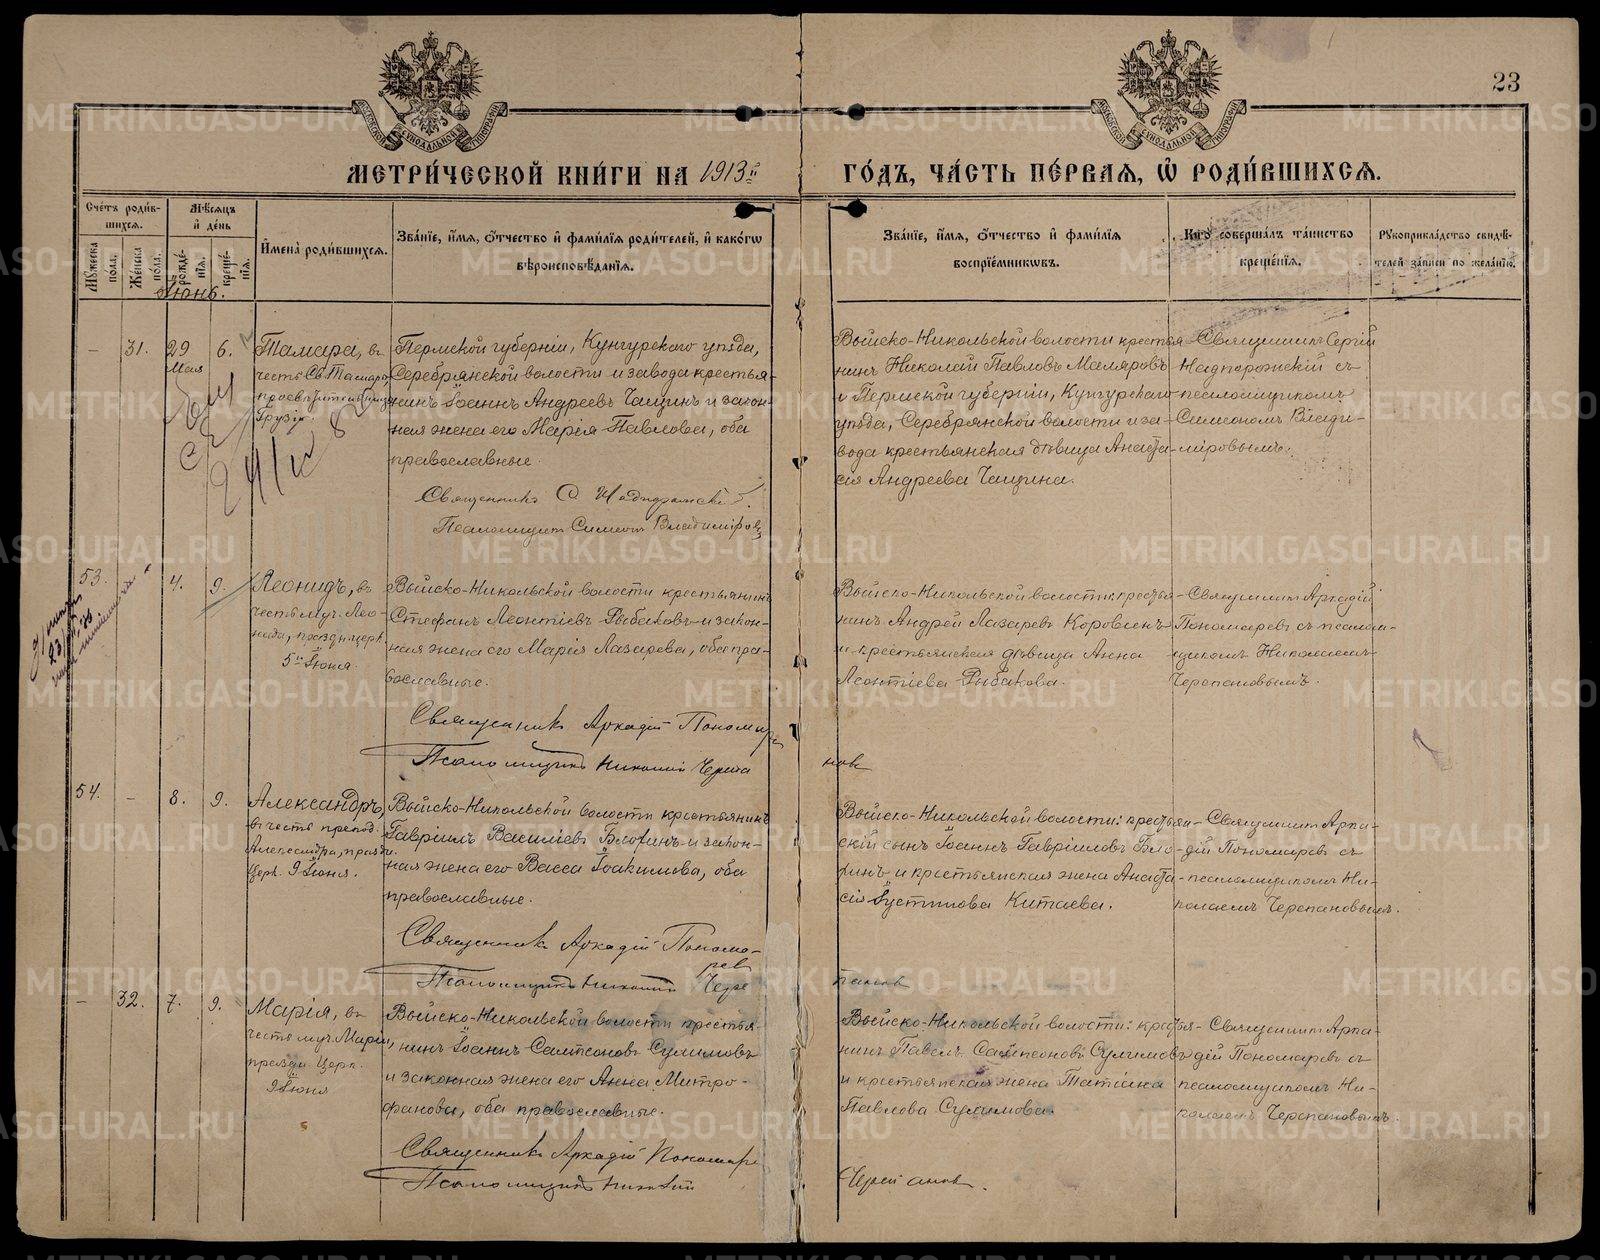 23
МЕТРИ́ЧЕСКОЙ КНИ́ГИ НА 1913й
ГО́ДЪ, ЧА́СТЬ ПЕ́РВАЯ, Ѡ РОДИ́ВШИХСЯ.
Сче́тъ роди́в-
шихся.
Мѣ́сяцъ
и҆ де́нь
Мꙋ́жеска по́ла.
Же́нска по́ла.
рожде́-нїя.
креще́-нїя.
И҆мена̀ роди́вшихся.
Зва́нїе, и҆́мя, ѻ҆́тчество и҆ фами́лїя роди́телей, и҆ како́гѡ
вѣроисповѣ́данїя.
Зва́нїе, и҆́мя, ѻ҆́тчество и҆ фами́лїя
воспрїе́мникѡвъ.
Кто̀ соверша́лъ та́инство
креще́нїя.
Рꙋкоприкла́дство свидѣ́-
телей за́писи по жела́нїю.
Іюнь.
– 31. 29 Мая 6.
Тамара, въ
честь Св. Тамары,
просвѣтительницы
Грузіи.
Пермской губерніи, Кунгурскаго уѣзда,
Серебрянской волости и завода крестья-
нинъ Іоаннъ Андреевъ Чащинъ и закон-
ная жена его Марія Павлова, оба
православные.
Священникъ С.
Псаломщикъ Симеонъ Владиміровъ
Выйско-Никольской волости крестья-
нинъ Николай Павловъ Маляровъ
и Пермской губерніи, Кунгурскаго
уѣзда, Серебрянской волости и за-
вода крестьянская дѣвица Анаста-
сія Андреева Чащина.
Священникъ Сергій
Надпорожскій съ
псаломщикомъ
Симеономъ Влади-
міровымъ.
53. 4. 9.
Леонидъ, въ
честь муч. Лео-
нида, праздн. церк.
5го Іюня.
Выйско-Никольской волости крестьянинъ
Стефанъ Леонтіевъ Рыбаковъ и закон-
ная жена его Марія Лазарева, оба пра-
вославные.
Священникъ Аркадій Пономаре
Псаломщикъ Николай Черепа
новъ
Выйско-Никольской волости: крестья-
нинъ Андрей Лазаревъ Коровинъ
и крестьянская дѣвица Анна
Леонтіева Рыбакова.
Священникъ Аркадій
Пономаревъ съ псалом-
щикомъ Николаемъ
Черепановымъ.
54. – 8. 9.
Александръ,
въ честь препод.
Александра, празд.
церк. 9 Іюня.
Выйско-Никольской волости крестьянинъ
Гавріилъ Василіевъ Блохинъ и закон-
ная жена его Васса Іоакимова, оба
православные.
Священникъ Аркадій Понома-
ревъ
Псаломщикъ Николай Чере
пановъ
Выйско-Никольской волости: крестьян-
скій сынъ Іоаннъ Гавріиловъ Бло-
хинъ и крестьянская жена Анаста-
сія Іустинова Китаева.
Священникъ Арка-
дій Пономаревъ съ
псаломщикомъ Ни-
колаемъ Черепановымъ.
– 32. 7. 9.
Марія, въ
честь муч. Маріи,
праздн. церк.
9 Іюня
Выйско-Никольской волости крестья-
нинъ Іоаннъ Сампсоновъ Сулимовъ
и законная жена его Анна Митро-
фанова, оба православные.
Священникъ Аркадій Пономаре
Псаломщикъ Николай
Черепановъ.
Выйско-Никольской волости: крестья-
нинъ Павелъ Сампсоновъ Сулимовъ
и крестьянская жена Татіана
Павлова Сулимова.
Священникъ Арка-
дій Пономаревъ съ
псаломщикомъ Ни-
колаемъ Черепановымъ.
METRIKI.GASO-URAL.RU